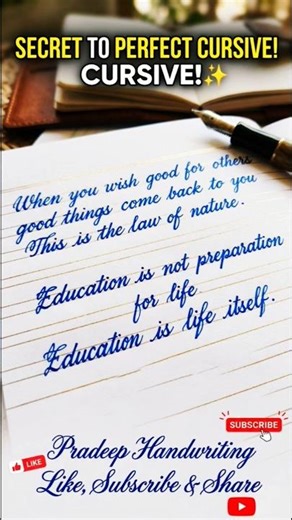 SECRET TO PERFECT CURSIVE!
CURSIVE!✨
When you wish good for others
good things come back to you
This is the law of nature.
Education is not preparation
for life
Education is life itself.
SUBSCRIBE
Pradeep Handwriting
LIKE
Like, Subscribe & Share